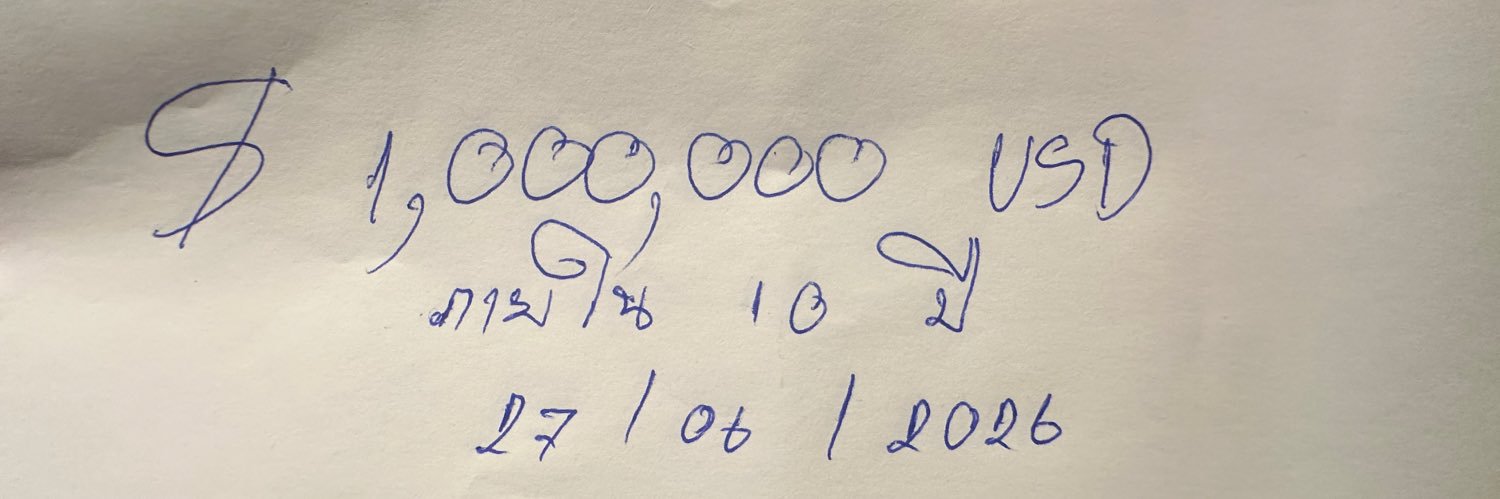 $ 1,000,000 USD
ภายใน 10 ปี
27 / 06 / 2026